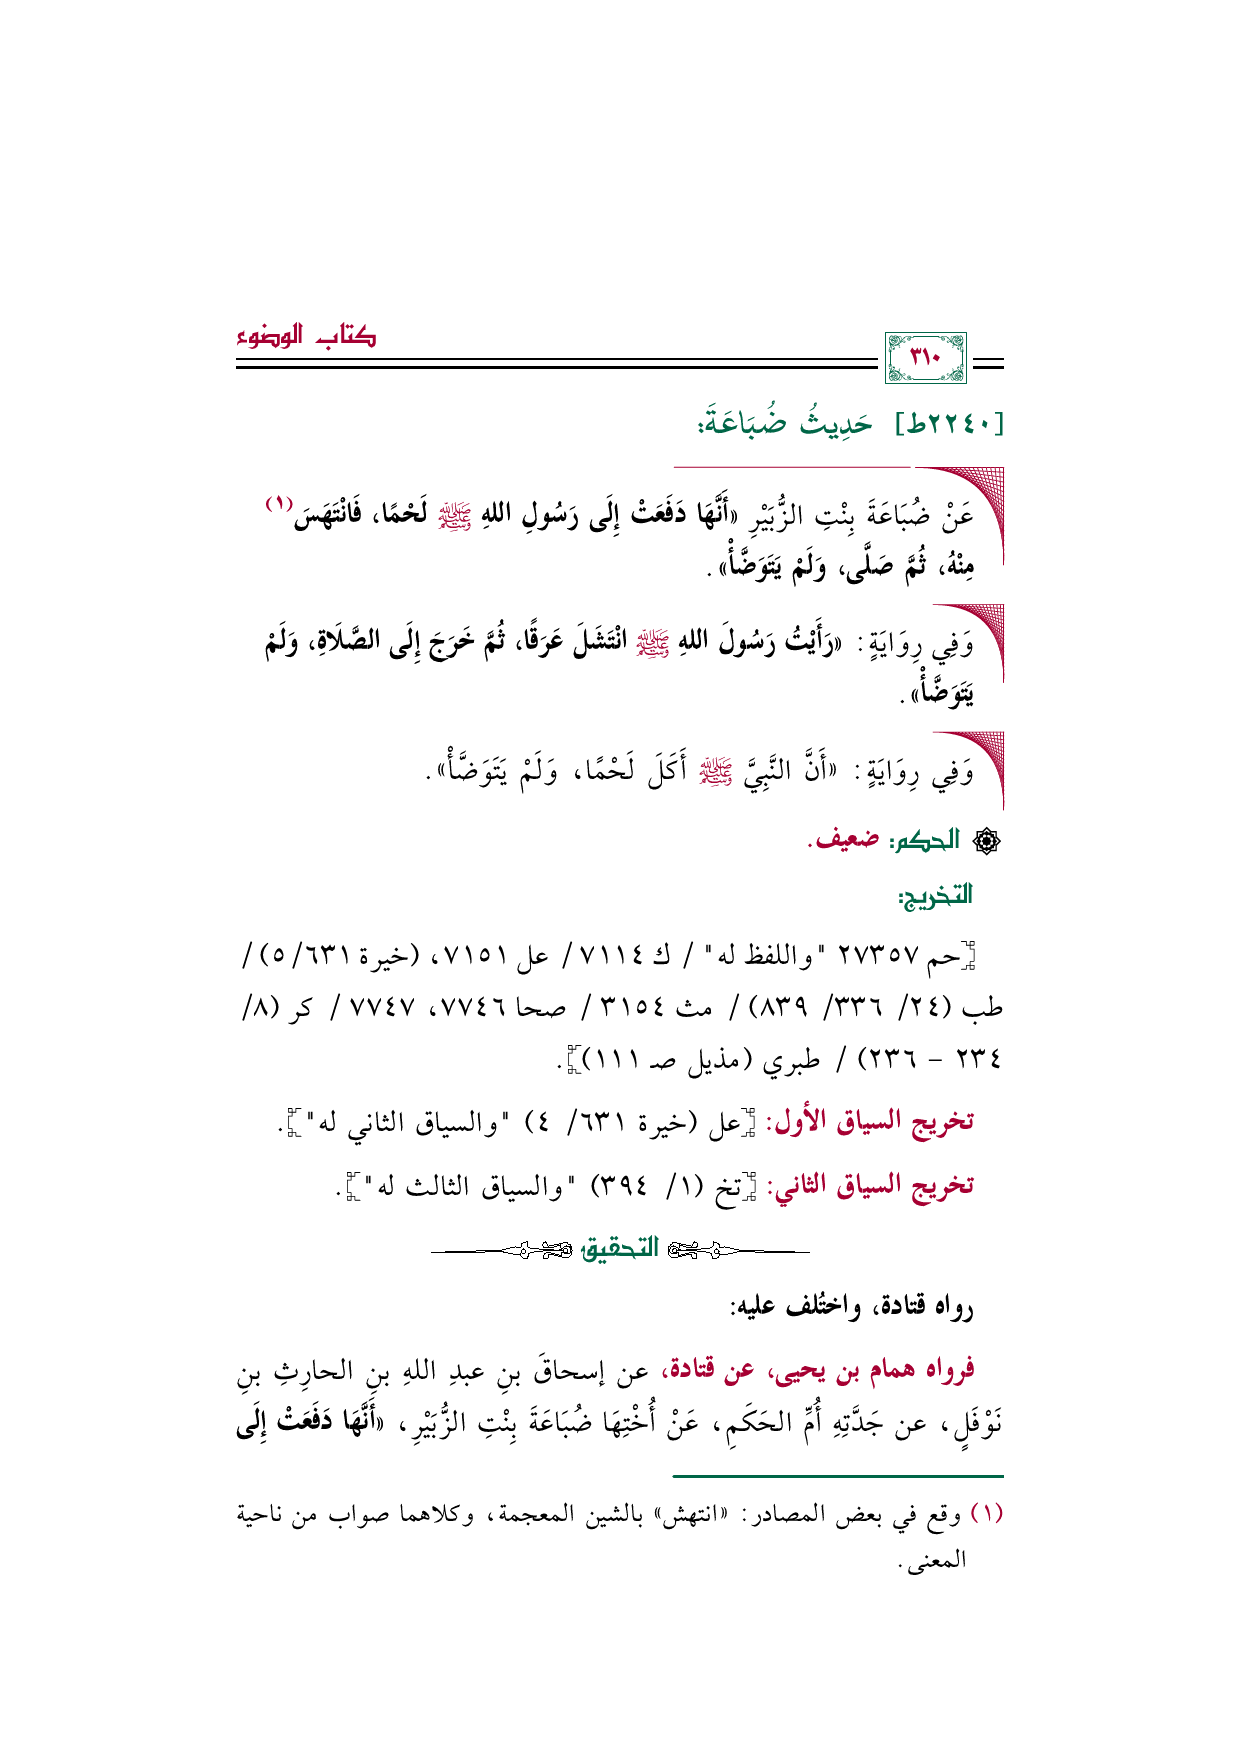 كتاب الوضوء
٣١٠
[٢٢٤٠ط] حَدِيثُ ضُبَاعَةَ:
عَنْ ضُبَاعَةَ بِنْتِ الزُّبَيْرِ «أَنَّهَا دَفَعَتْ إِلَى رَسُولِ اللهِ ﷺ لَحْمًا، فَانْتَهَسَ(١)
مِنْهُ، ثُمَّ صَلَّى، وَلَمْ يَتَوَضَّأْ».
وَفِي رِوَايَةٍ: «رَأَيْتُ رَسُولَ اللهِ ﷺ انْتَشَلَ عَرَقًا، ثُمَّ خَرَجَ إِلَى الصَّلَاةِ، وَلَمْ
يَتَوَضَّأْ».
وَفِي رِوَايَةٍ: «أَنَّ النَّبِيَّ ﷺ أَكَلَ لَحْمًا، وَلَمْ يَتَوَضَّأْ».
الحكم: ضعيف.
التخريج:
[حم ٢٧٣٥٧ "واللفظ له" / ك ٧١١٤ / عل ٧١٥١، (خيرة ٦٣١/ ٥) /
طب (٢٤/ ٣٣٦/ ٨٣٩) / مث ٣١٥٤ / صحا ٧٧٤٦، ٧٧٤٧ / كر (٨/
٢٣٤ - ٢٣٦) / طبري (مذيل صـ ١١١)].
تخريج السياق الأول: [عل (خيرة ٦٣١/ ٤) "والسياق الثاني له"].
تخريج السياق الثاني: [تخ (١/ ٣٩٤) "والسياق الثالث له"].
التحقيق
رواه قتادة، واختُلف عليه:
فرواه همام بن يحيى، عن قتادة، عن إسحاقَ بنِ عبدِ اللهِ بنِ الحارِثِ بنِ
نَوْفَلٍ، عن جَدَّتِهِ أُمِّ الحَكَمِ، عَنْ أُخْتِهَا ضُبَاعَةَ بِنْتِ الزُّبَيْرِ، «أَنَّهَا دَفَعَتْ إِلَى
(١) وقع في بعض المصادر: «انتهش» بالشين المعجمة، وكلاهما صواب من ناحية
المعنى.